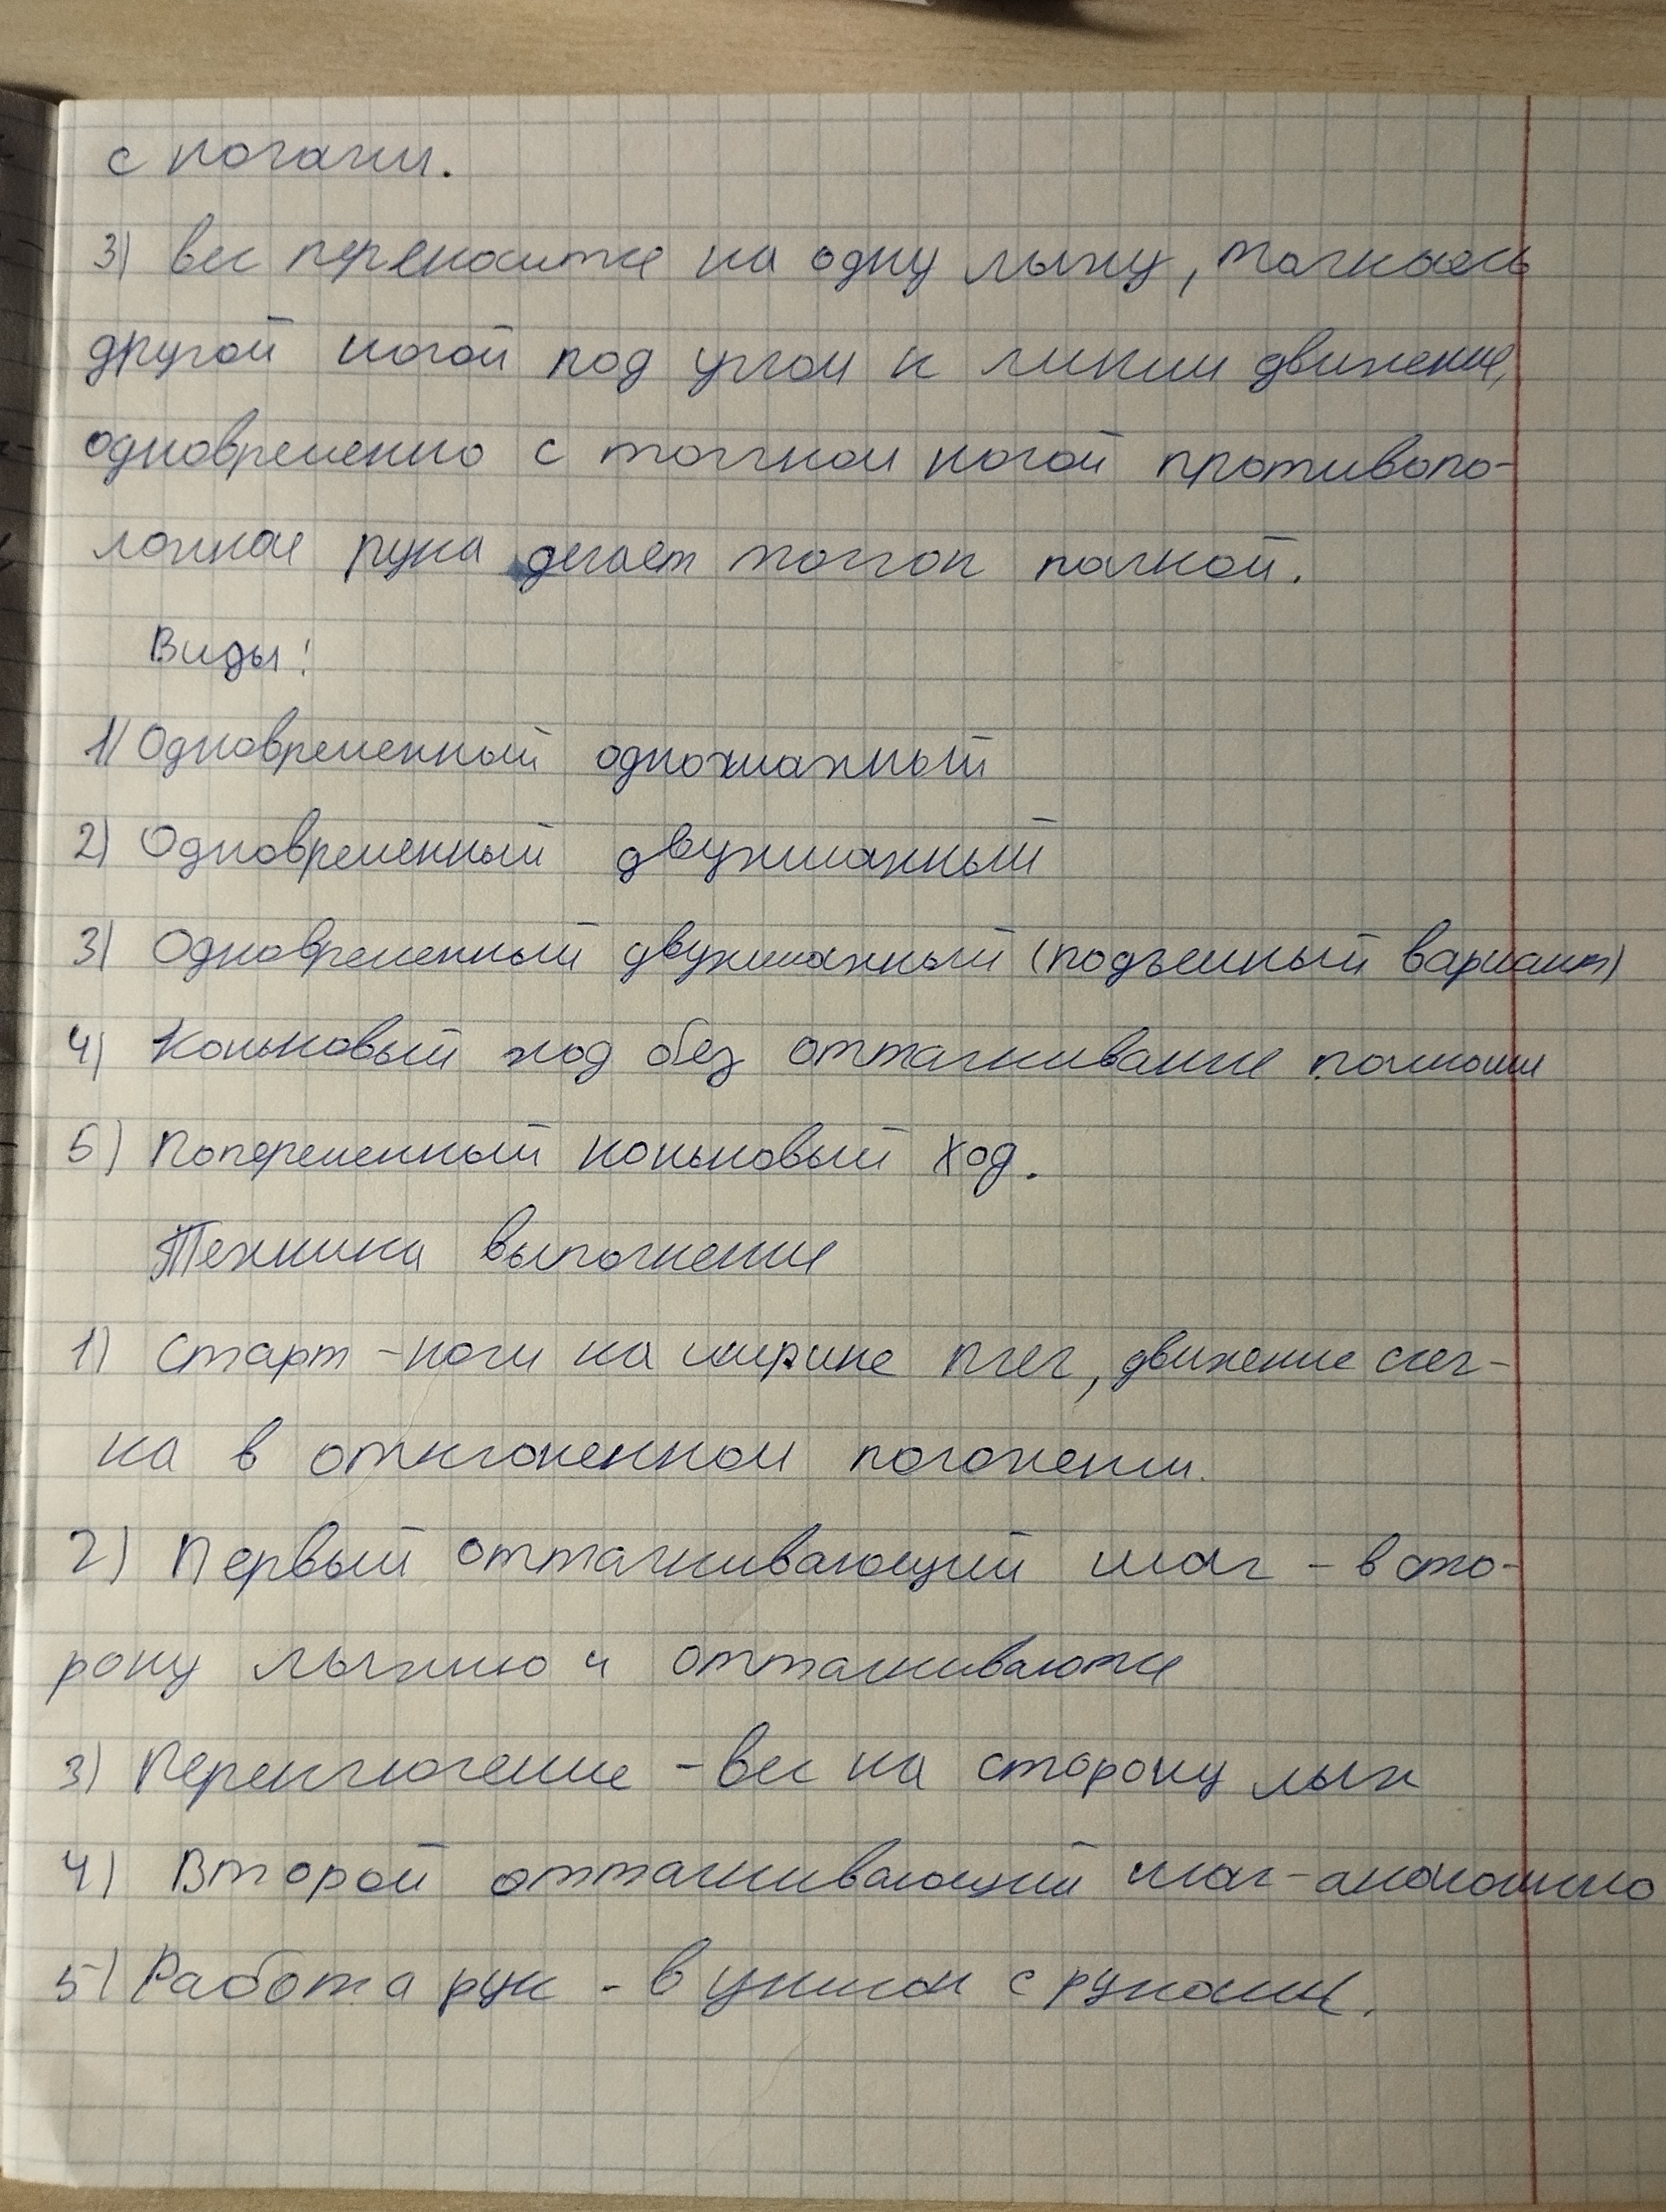 с ногами.
3) вес переносится на одну лыжу, толкаясь
другой ногой под углом к линии движения,
одновременно с толчком ногой противопо-
ложная рука делает толчок палкой.
Виды:
1) Одновременный одношажный
2) Одновременный двухшажный
3) Одновременный двухшажный (подъемный вариант)
4) Коньковый ход без отталкивания палками
5) Попеременный коньковый ход.
Техника выполнения
1) Старт - ноги на ширине плеч, движение слег-
ка в отклоненном положении.
2) Первый отталкивающий шаг - в сто-
рону лыжню и отталкиваются
3) Переключение - вес на сторону лыж
4) Второй отталкивающий шаг - аналогично
5) Работа рук - в унисон с руками.